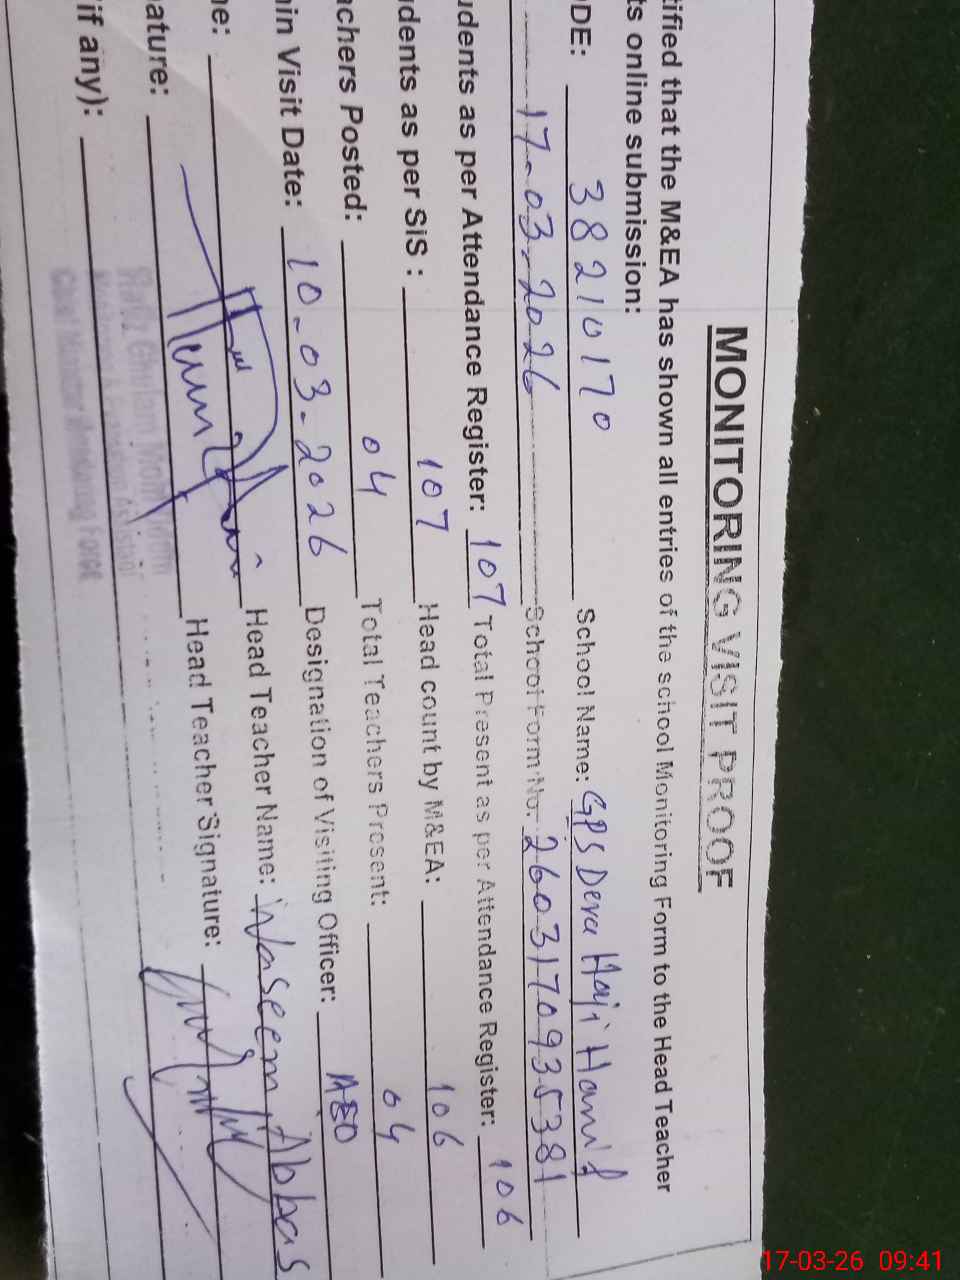 MONITORING VISIT PROOF
tified that the M&EA has shown all entries of the school Monitoring Form to the Head Teacher
ts online submission:
DE: 38210170 School Name: GPS Dera Haji Hamid
17-03-2026 School Form No: 2603170935381
udents as per Attendance Register: 107 Total Present as per Attendance Register: 106
udents as per SiS : 107 Head count by M&EA: 106
achers Posted: 04 Total Teachers Present: 04
in Visit Date: 10-03-2026 Designation of Visiting Officer: AEO
ne: Head Teacher Name: Waseem Abbas
nature: Head Teacher Signature:
if any):
Hafiz Ghulam
Monitoring & Evaluation Assistant
Chief Minister Monitoring Force
17-03-26 09:41